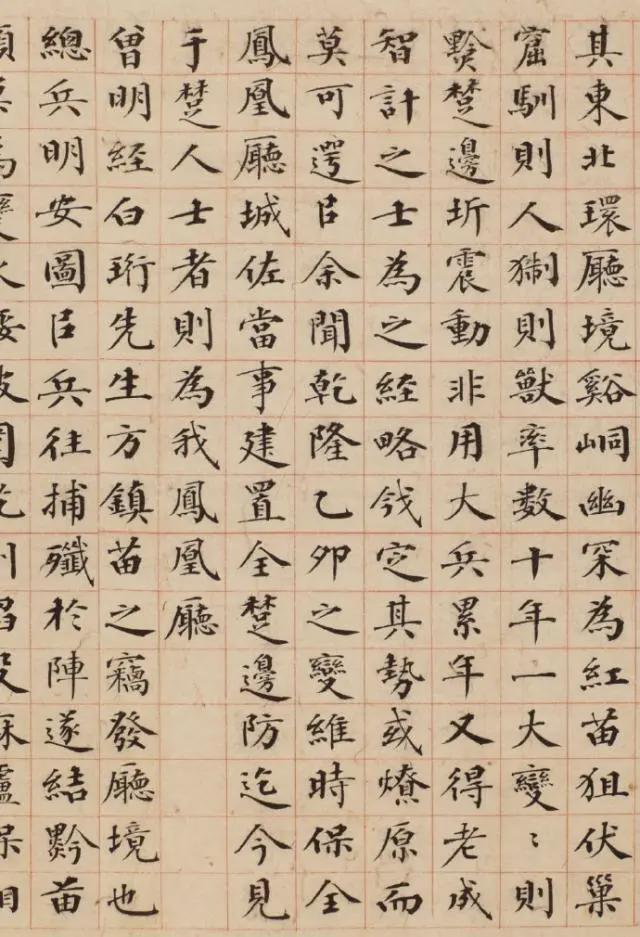 其東北環廳境谿峒幽罙為紅苗狙伏巢
窟馴則人猘則獸率數十年一大變〻則
黔楚邊圻震動非用大兵累年又得老成
智計之士為之經略定其勢或燎原而
莫可遏㠯余聞乾隆乙卯之變維時保全
鳳凰廳城佐當事建置全楚邊防迄今見
于楚人士者則為我鳳凰廳
曾明經白珩先生方鎮苗之竊發廳境也
總兵明安圖㠯兵往捕殲於陣遂結黔苗